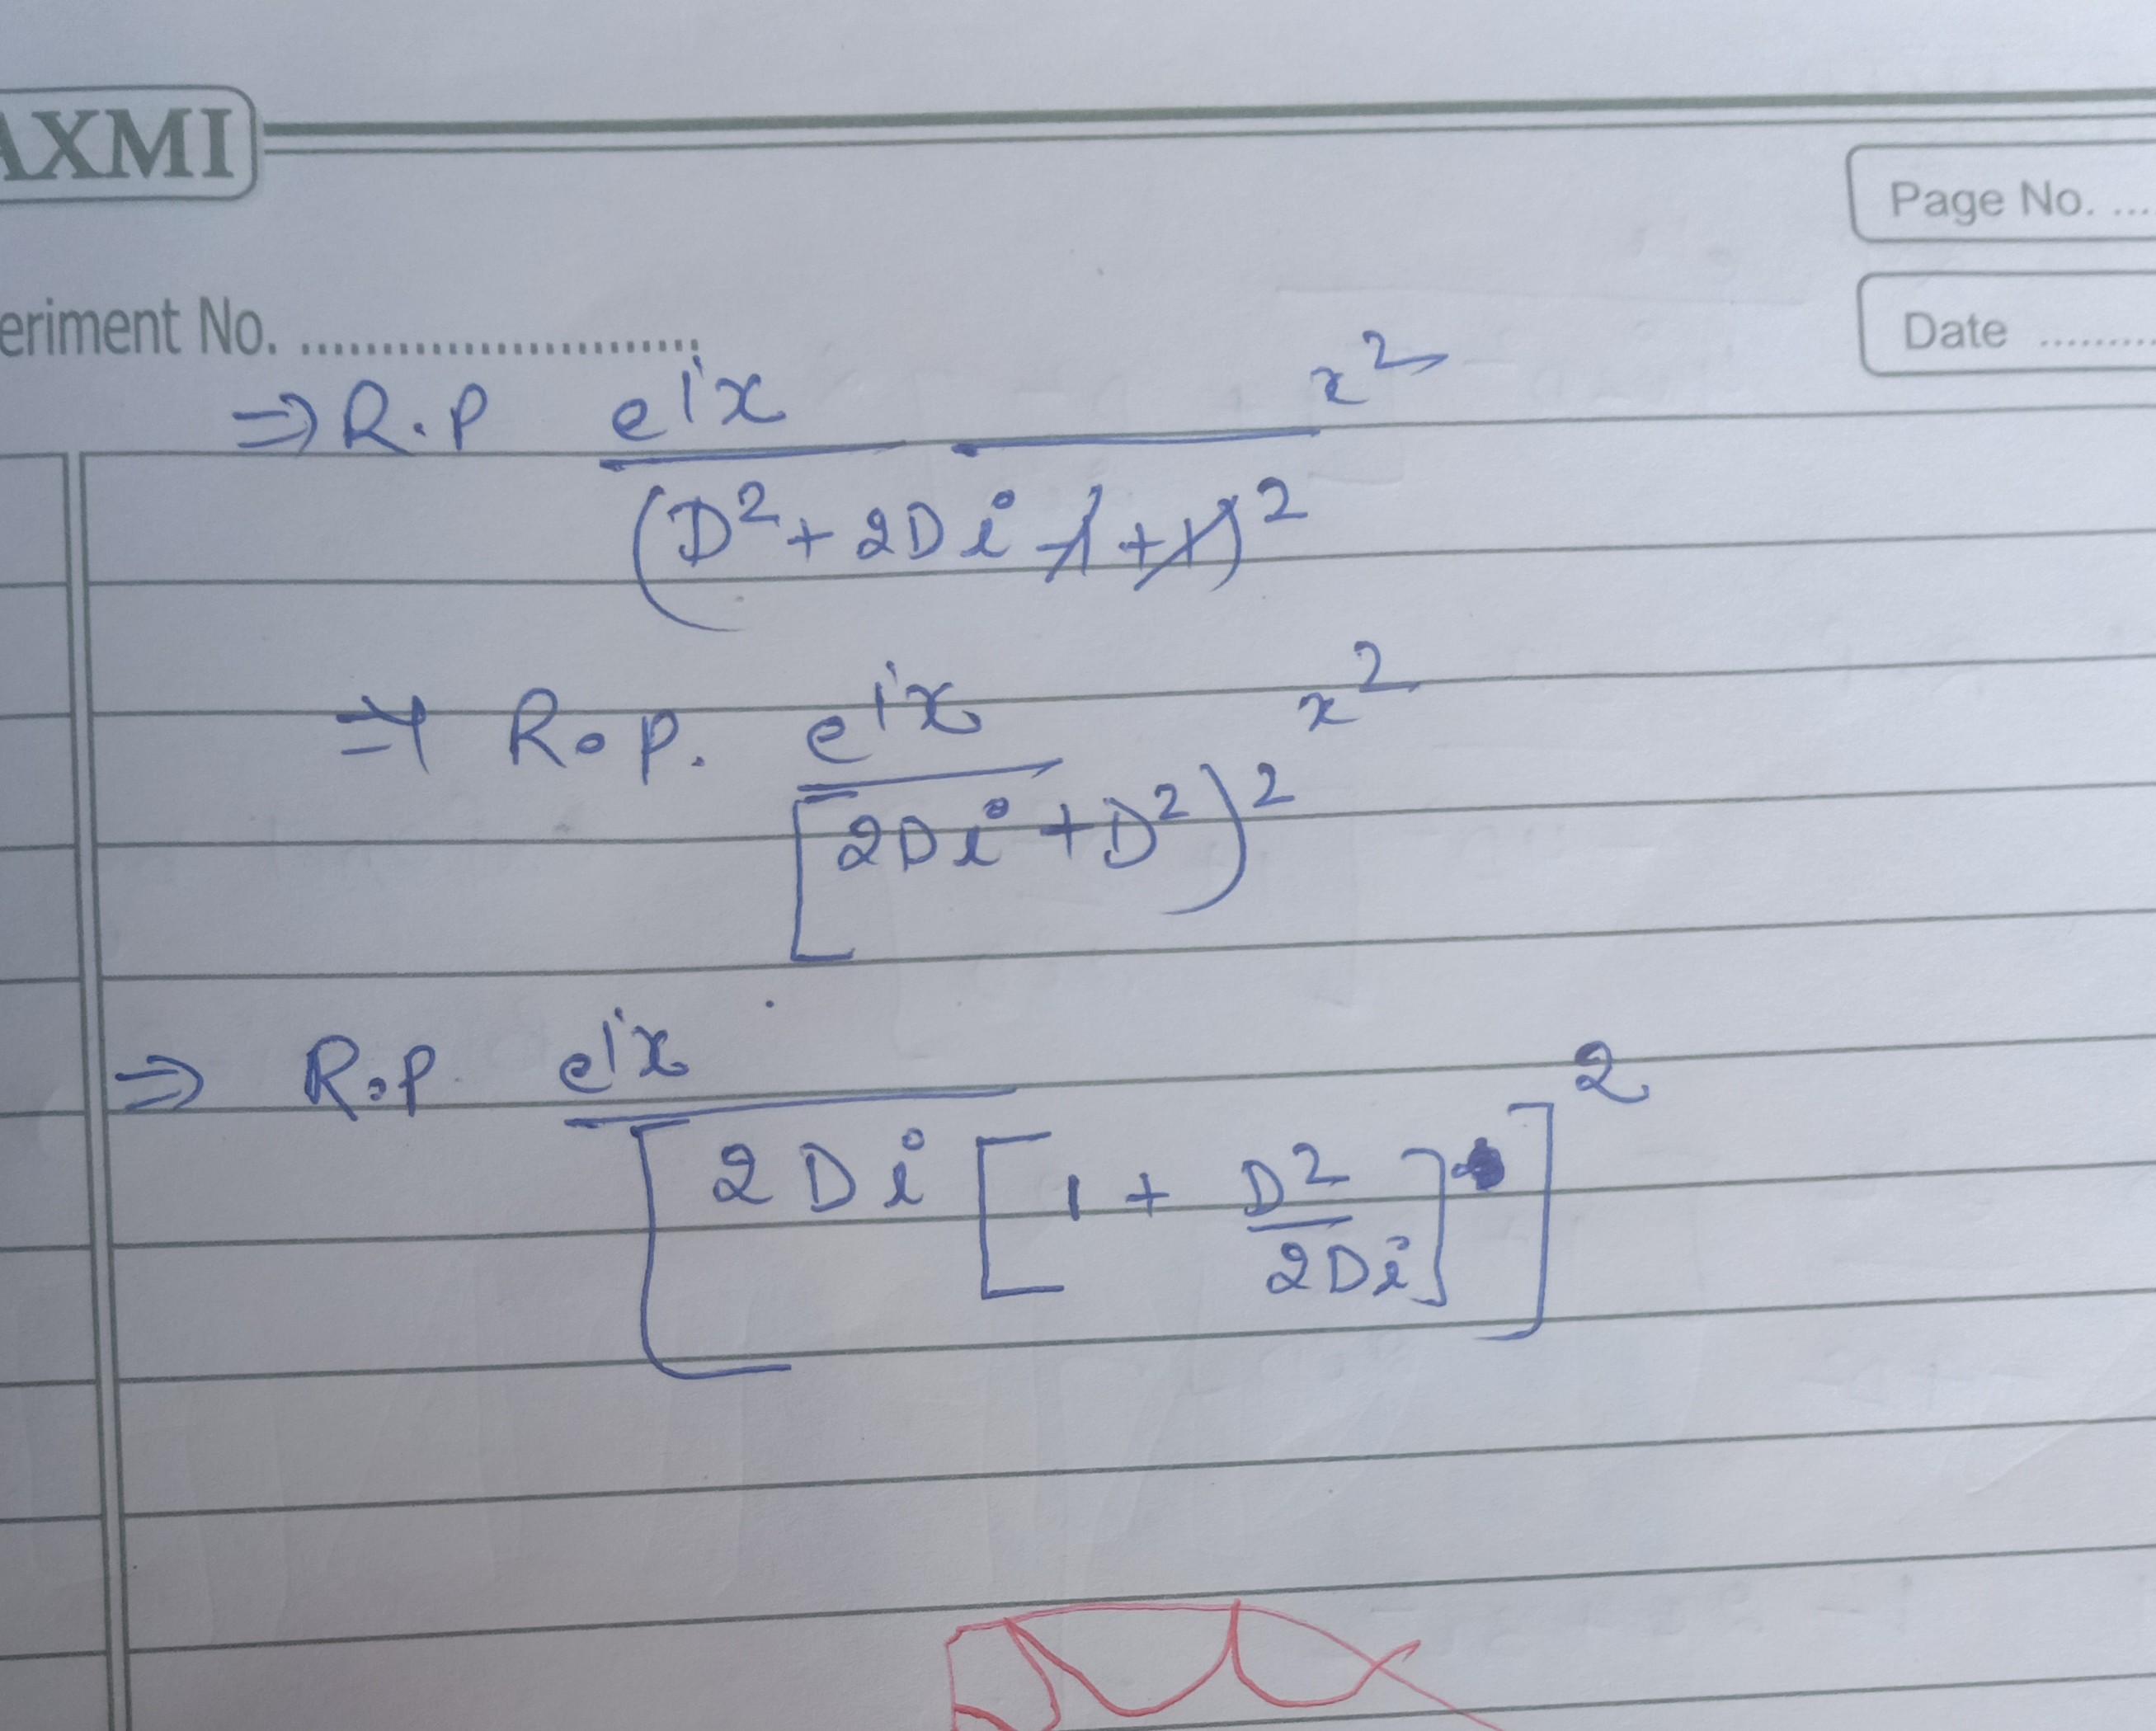 AXMI
Page No. ...
eriment No. ..........................
Date .........
⇒ R.P e^ix / (D² + 2Di -1 +1)² x²
⇒ R.P. e^ix / [2Di + D²)² x²
⇒ R.P e^ix / [2Di [1 + D²/2Di]]²